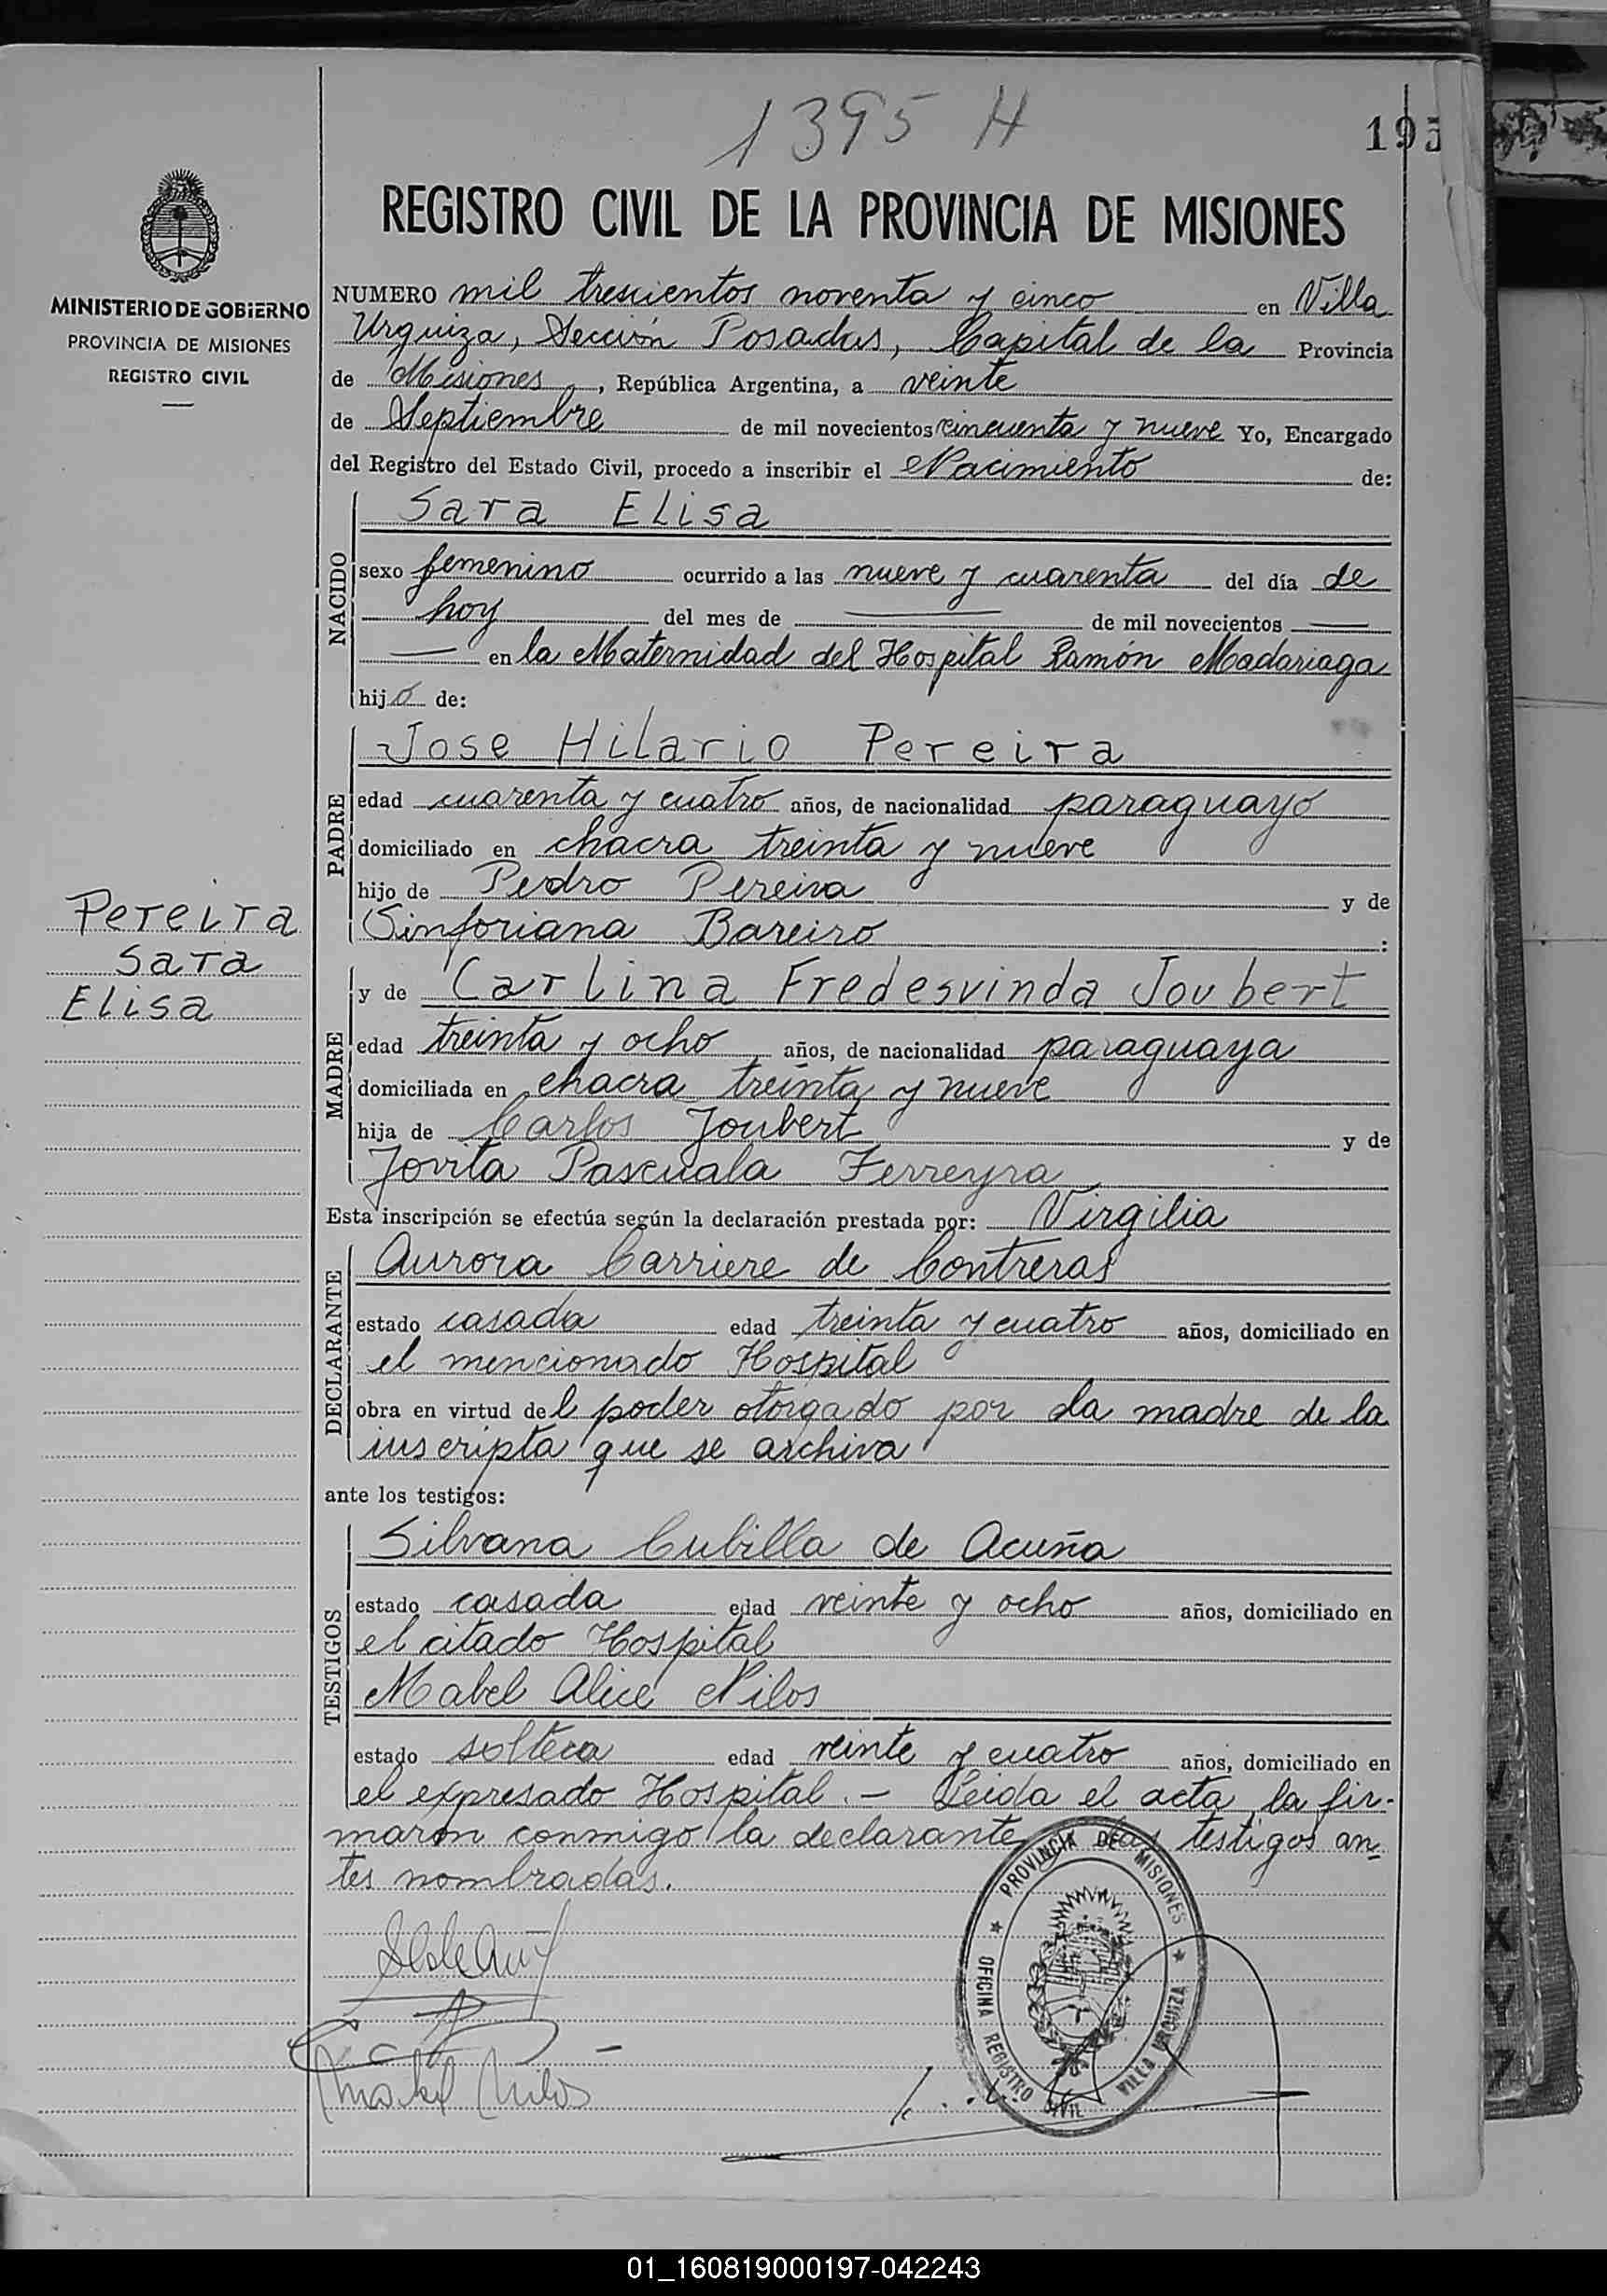 1395 H
195
REGISTRO CIVIL DE LA PROVINCIA DE MISIONES
MINISTERIO DE GOBIERNO
PROVINCIA DE MISIONES
REGISTRO CIVIL
NUMERO mil trescientos noventa y cinco en Villa
Urquiza, Sección Posadas, Capital de la Provincia
de Misiones, República Argentina, a veinte
de Septiembre de mil novecientos cincuenta y nueve Yo, Encargado
del Registro del Estado Civil, procedo a inscribir el Nacimiento de:
NACIDO
Sara Elisa
sexo femenino ocurrido a las nueve y cuarenta del día de
hoy del mes de — de mil novecientos —
— en la Maternidad del Hospital Ramón Madariaga
hijo de:
PADRE
Jose Hilario Pereira
edad cuarenta y cuatro años, de nacionalidad paraguayo
domiciliado en chacra treinta y nueve
hijo de Pedro Pereira y de
Sinforiana Bareiro :
Pereira
Sara
Elisa
MADRE
y de Carlina Fredesvinda Joubert
edad treinta y ocho años, de nacionalidad paraguaya
domiciliada en chacra treinta y nueve
hija de Carlos Joubert y de
Jovita Pascuala Ferreyra
Esta inscripción se efectúa según la declaración prestada por: Virgilia
DECLARANTE
Aurora Carriere de Contreras
estado casada edad treinta y cuatro años, domiciliado en
el mencionado Hospital
obra en virtud del poder otorgado por la madre de la
inscripta que se archiva
ante los testigos:
TESTIGOS
Silvana Cubilla de Acuña
estado casada edad veinte y ocho años, domiciliado en
el citado Hospital
Mabel Alice Nilos
estado soltera edad veinte y cuatro años, domiciliado en
el expresado Hospital.- Leida el acta, la fir-
maron conmigo la declarante las testigos an=
tes nombradas.
PROVINCIA DE MISIONES
OFICINA REGISTRO CIVIL VILLA URQUIZA
Mabel Nilos
01_160819000197-042243